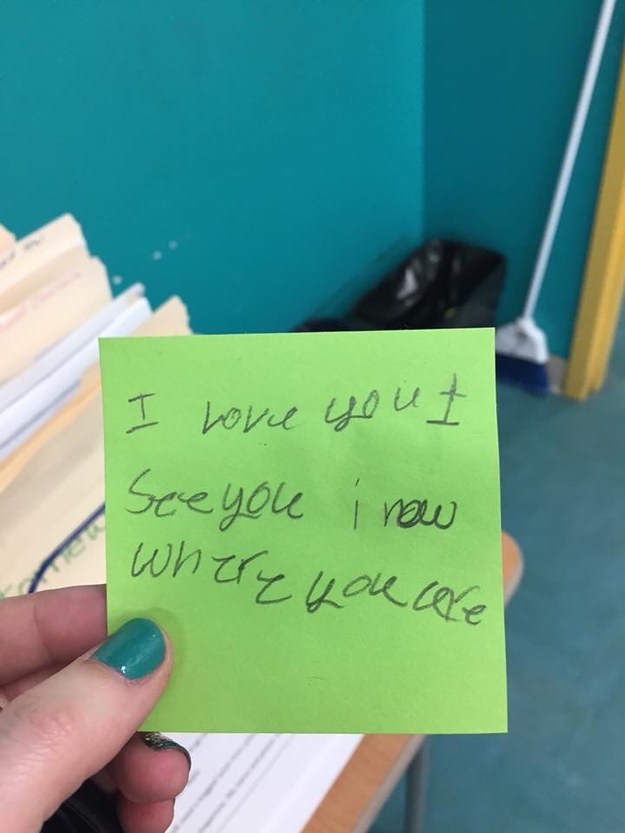 I love you I
See you i now
where you are